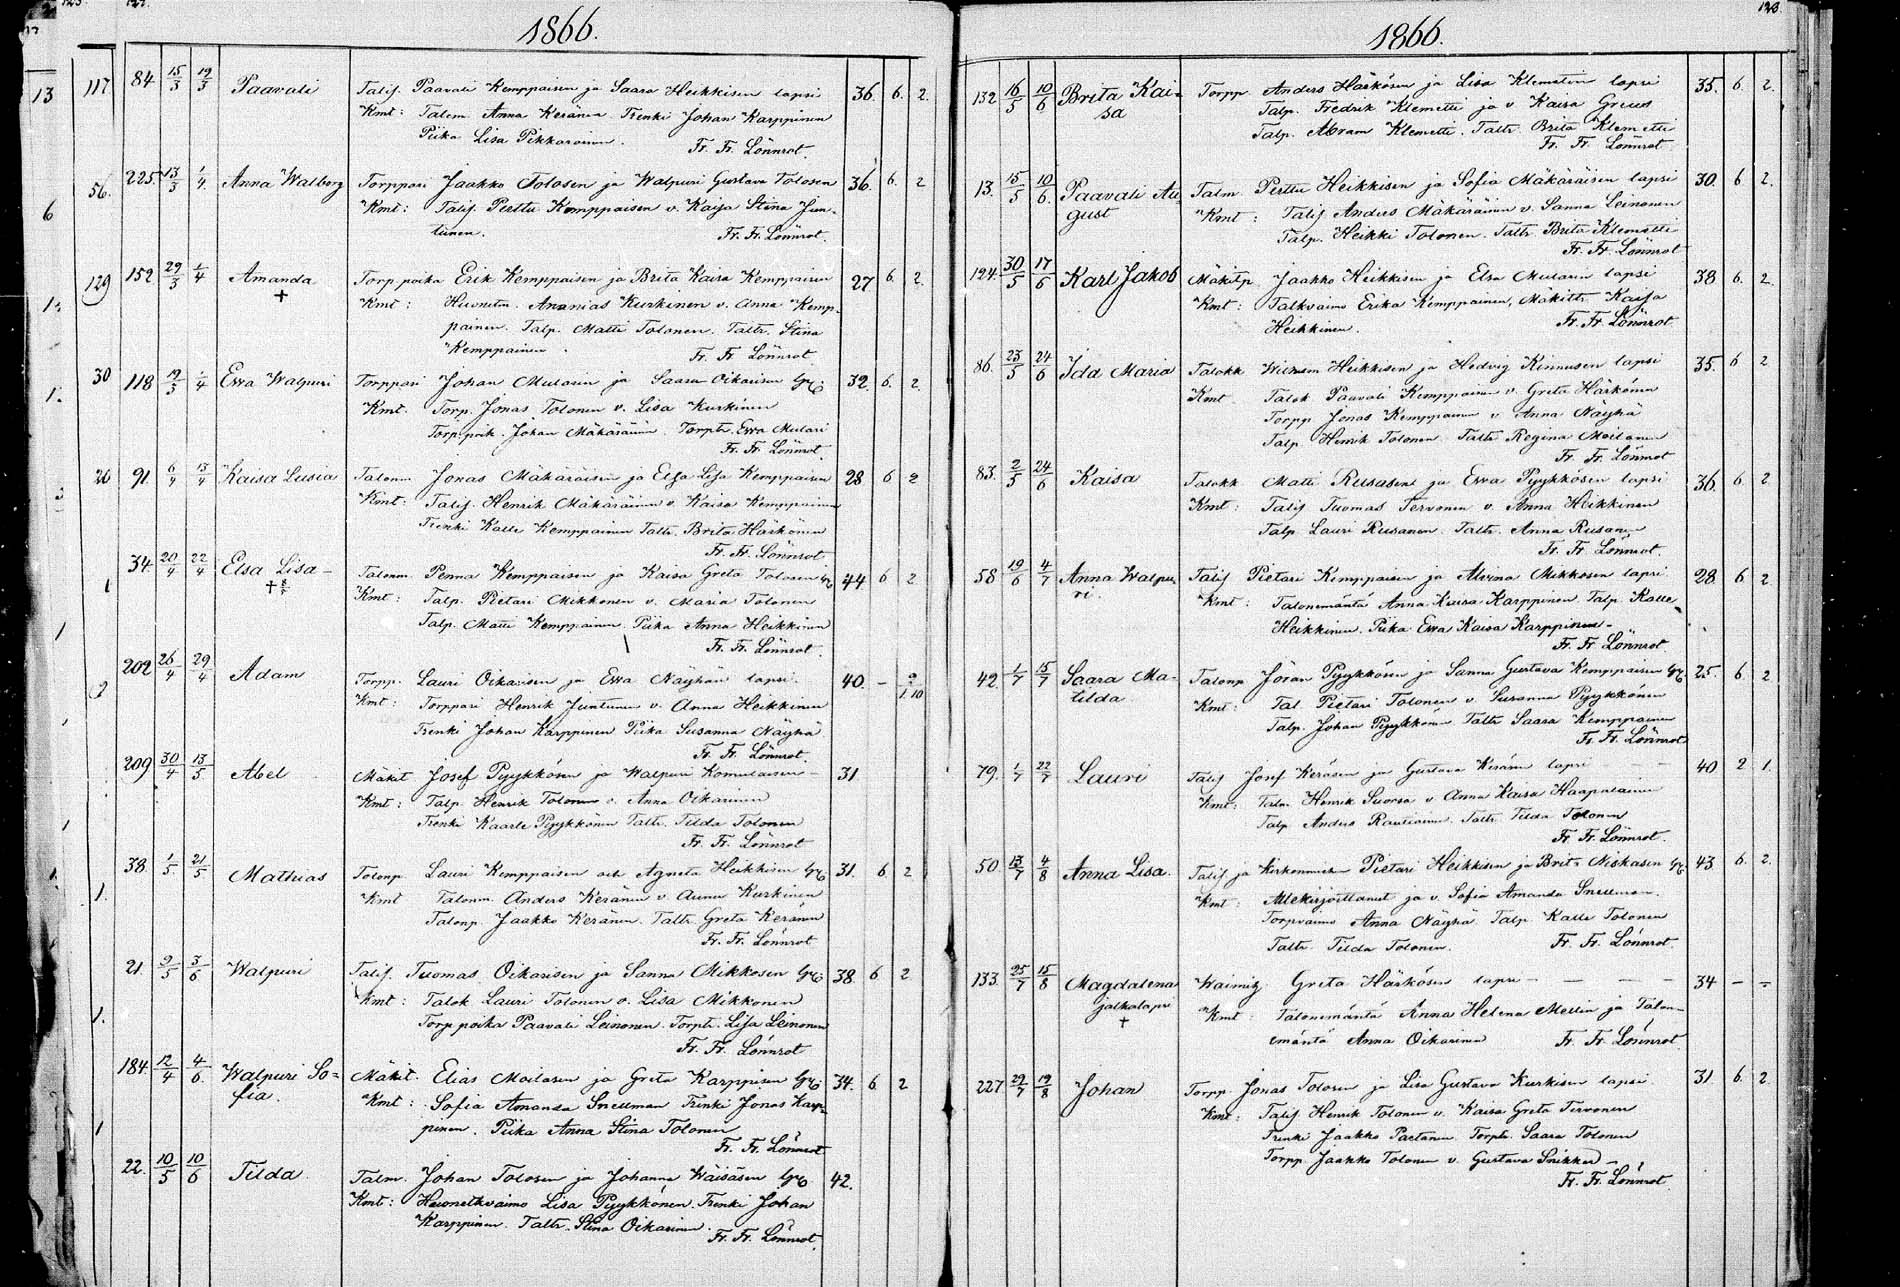 123.
127.
1866.
117 84 15/3 19/3 Paavali Talij. Paavali Kemppaisen ja Saara Heikkisen lapsi 36. 6. 2.
Kmt: Talem Anna Keränen Trenki Johan Karppinen
Piika Lisa Pikkarainen.
Fr. Fr. Lönnrot.
56. 225. 13/3 1/4 Anna Walborg Torppari Jaakko Tolosen ja Walpuri Gustava Tolosen 36. 6. 2
Kmt: Talij. Perttu Kemppaisen v. Kaisa Stina Jun-
tunen. Fr. Fr. Lönnrot.
129 152 29/3 1/4 Amanda Torp poika Erik Kemppaisen ja Brita Kaisa Kemppaisen 27 6. 2.
+
Kmt: Ananias Kurkinen v. Anna Kemp-
painen. Talp. Matti Tolonen. Taltr. Stina
Kemppainen. Fr. Fr. Lönnrot
30 118 19/3 1/4 Ewa Walpuri Torppari Johan Mularen ja Saara Oikarisen 32. 6. 2.
Kmt. Torp. Jonas Tolonen v. Lisa Kurkinen
Torp.poik. Johan Mäkäräinen. Torptr. Ewa Mulari
Fr. Fr. Lönnrot.
20 91. 6/4 13/4 Kaisa Lusia Talonm Jonas Mäkäräisen ja Elsa Lisa Kemppaisen 28 6 2
Kmt: Talij. Henrik Mäkäräinen v. Kaisa Kemppainen
Trenki Kalle Kemppainen Taltr. Brita Härkönen
Fr. Fr. Lönnrot
34. 20/4 22/4 Elsa Lisa Talonm. Penna Kemppaisen ja Kaisa Greta Tolosen 44 6 2
+
Kmt: Talp. Pietari Mikkonen v. Maria Tolonen
Talp. Matti Kemppainen. Piika Anna Heikkinen
Fr. Fr. Lönnrot.
202 26/4 29/4 Adam Torpp. Lauri Oikarisen ja Ewa Näyhän lapsi 40. –
Kmt: Torppari Henrik Juntunen v. Anna Heikkinen
Trenki Johan Karppinen Piika Susanna Näyhä
Fr. Fr. Lönnrot.
209 30/4 13/5 Abel Mäkit Josef Pyykkösen ja Walpuri Komulaisen 31
Kmt: Talp. Henrik Tolonen v. Anna Oikarinen
Trenki Kaarle Pyykkönen Taltr. Tilda Tolonen
Fr. Fr. Lönnrot
38. 1/5 21/5 Mathias Talonp Lauri Kemppaisen och Agneta Heikkisen 31. 6 2
Kmt Talonm. Anders Keränen v. Aunu Kurkinen
Talonp Jaakko Keränen. Taltr. Greta Keränen
Fr. Fr. Lönnrot
21. 9/5 3/6 Walpuri Talij. Tuomas Oikarisen ja Sanna Mikkosen 38. 6 2
Kmt: Talok Lauri Tolonen v. Lisa Mikkonen
Torp poika Paavali Leinonen. Torptr. Lisa Leinonen
Fr. Fr. Lönnrot
184. 12/4 4/6 Walpuri So= Mäkit. Elias Moilasen ja Greta Karppisen 34. 6 2
fia.
Kmt: Sofia Amanda Snellman Trenki Jonas Karp-
pinen. Piika Anna Stina Tolonen
Fr. Fr. Lönnrot
22. 10/5 10/6 Tilda Talm. Johan Tolosen ja Johanna Wäisäsen 42.
Kmt: Lisa Pyykkönen. Trenki Johan
Karppinen. Taltr. Stina Oikarinen.
Fr. Fr. Lönnrot.
128.
1866.
132 16/5 10/6 Brita Kai- Torpp Anders Härkösen ja Lisa Klemetin lapsi 35. 6 2.
sa
Talp. Fredrik Klemetti ja v Kaisa Greus
Talp. Abram Klemetti. Taltr. Brita Klemetti
Fr. Fr. Lönnrot
13. 15/5 10/6. Paavali Au Talm Perttu Heikkisen ja Sofia Mäkäräisen lapsi 30. 6 2.
gust
Kmt: Talij Anders Mäkäräinen v. Sanna Leinonen
Talp. Heikki Tolonen. Taltr Brita Klemetti
Fr. Fr. Lönnrot
124. 30/5 17/6 Karl Jakob Mäkitp Jaakko Heikkisen ja Elsa Mularin lapsi 38 6 2.
Kmt: Talkvaimo Erika Kemppainen, Mäkittr Kaisa
Heikkinen. Fr. Fr. Lönnrot
86. 23/5 24/6 Ida Maria Talokk Heikkisen ja Hedvig Kinnusen lapsi 35. 6 2
Kmt Talok Paavali Kemppainen v Greta Härkönen
Torpp Jonas Kemppainen v Anna Näyhä
Talp Henrik Tolonen Taltr Regina Moilanen
Fr. Fr. Lönnrot
83. 2/5 24/6 Kaisa Talokk Matti Rusasen ja Ewa Pyykkösen lapsi 36. 6 2
Kmt: Talij Tuomas Tervonen v. Anna Heikkinen
Talp Lauri Rusanen Taltr. Anna Rusanen
Fr. Fr. Lönnrot.
58 19/6 4/7 Anna Walpu Talij Pietari Kemppaisen ja Alvina Mikkosen lapsi 28. 6 2
ri.
Kmt: Talonemäntä Anna Kaisa Karppinen Talp. Kalle
Heikkinen. Piika Ewa Kaisa Karppinen
Fr. Fr. Lönnrot
42. 1/7 15/7 Saara Ma- Talonp Jöran Pyykkösen ja Sanna Gustava Kemppaisen 25. 6 2
tilda
Kmt: Tal. Pietari Tolonen v Susanna Pyykkönen
Talp. Johan Pyykkönen Taltr Saara Kemppainen
Fr. Fr. Lönnrot
79. 1/7 22/7 Lauri Talij Josef Keräsen ja Gustava Keräsen lapsi 40 2 1.
Kmt: Talm. Henrik Suorsa v Anna Kaisa Haapalainen
Talp Anders Rautiainen. Taltr Tilda Tolonen
Fr. Fr. Lönnrot
50. 13/7 4/8 Anna Lisa. Talij ja Pietari Heikkisen ja Brita Niskasen 43 6. 2.
Kmt: Allekirjoittanut ja v. Sofia Amanda Snellman.
Torpvaimo Anna Näyhä Talp Kalle Tolonen
Taltr. Tilda Tolonen. Fr. Fr. Lönnrot
133. 25/7 15/8 Magdalena Greta Härkösen lapsi – – – – 34 – –
jalkalapsi
+
Kmt: Talonemäntä Anna Helena Mellin ja Talon-
emäntä Anna Oikarinen Fr. Fr. Lönnrot
227 29/7 19/8 Johan Torpp Jonas Tolosen ja Lisa Gustava Kurkisen lapsi 31. 6. 2
Kmt: Talij Henrik Tolonen v. Kaisa Greta Tervonen
Trenki Jaakko Partanen Torptr. Saara Tolonen
Torpp. Jaakko Tolonen v. Gustava Snikker –
Fr. Fr. Lönnrot